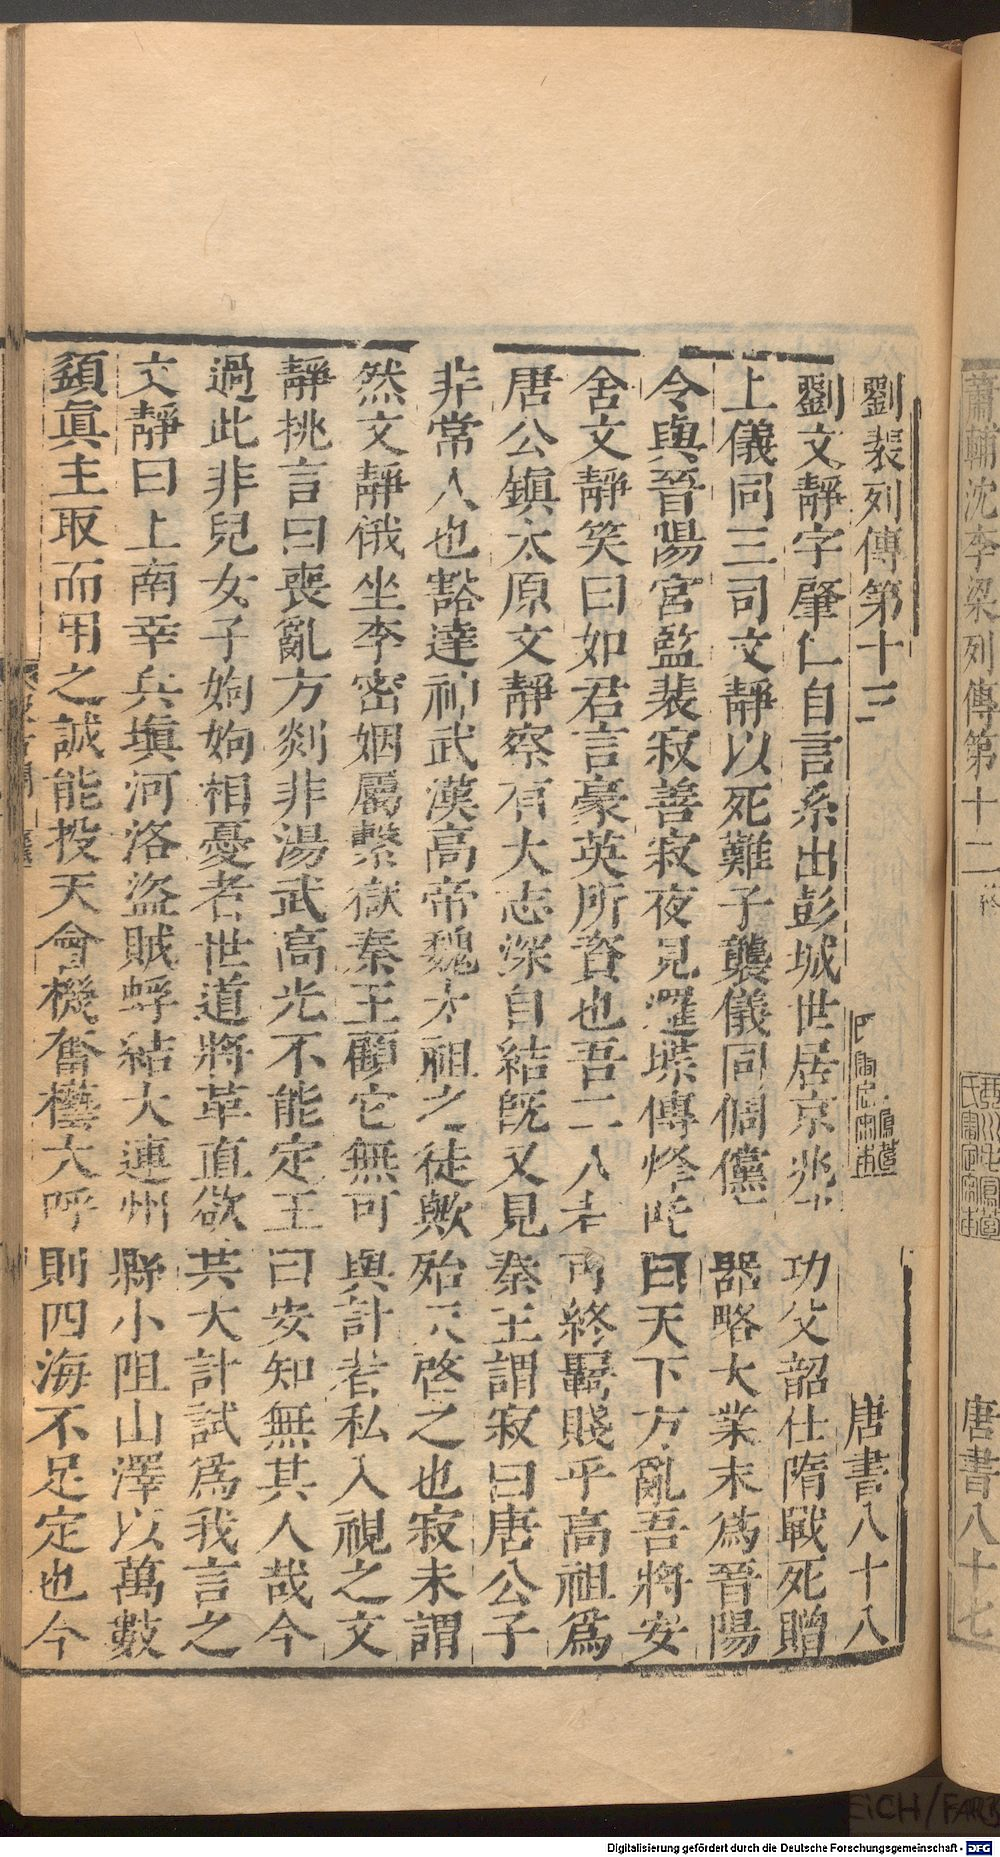 蕭輔沈李梁列傳第十二終　唐書八十七
劉裴列傳第十三　唐書八十八
劉文靜字肇仁自言系出彭城世居京兆武功父韶仕隋戰死贈
上儀同三司文靜以死難子襲儀同倜儻有器略大業末爲晉陽
令與晉陽宮監裴寂善寂夜見邏堞傳烽吒曰天下方亂吾將安
舍文靜笑曰如君言豪英所資也吾二人者可終羈賤乎高祖爲
唐公鎮太原文靜察有大志深自結旣又見秦王謂寂曰唐公子
非常人也豁達神武漢高帝魏太祖之徒歟殆天啓之也寂未謂
然文靜俄坐李密姻屬繫獄秦王顧它無可與計者私入視之文
靜挑言曰喪亂方剡非湯武高光不能定王曰安知無其人哉今
過此非兒女子姁姁相憂者世道將革直欲共大計試爲我言之
文靜曰上南幸兵塡河洛盜賊蜉結大連州縣小阻山澤以萬數
須眞主取而用之誠能投天會機奮櫱大呼則四海不足定也今
EICH/FARB
Digitalisierung gefördert durch die Deutsche Forschungsgemeinschaft - DFG